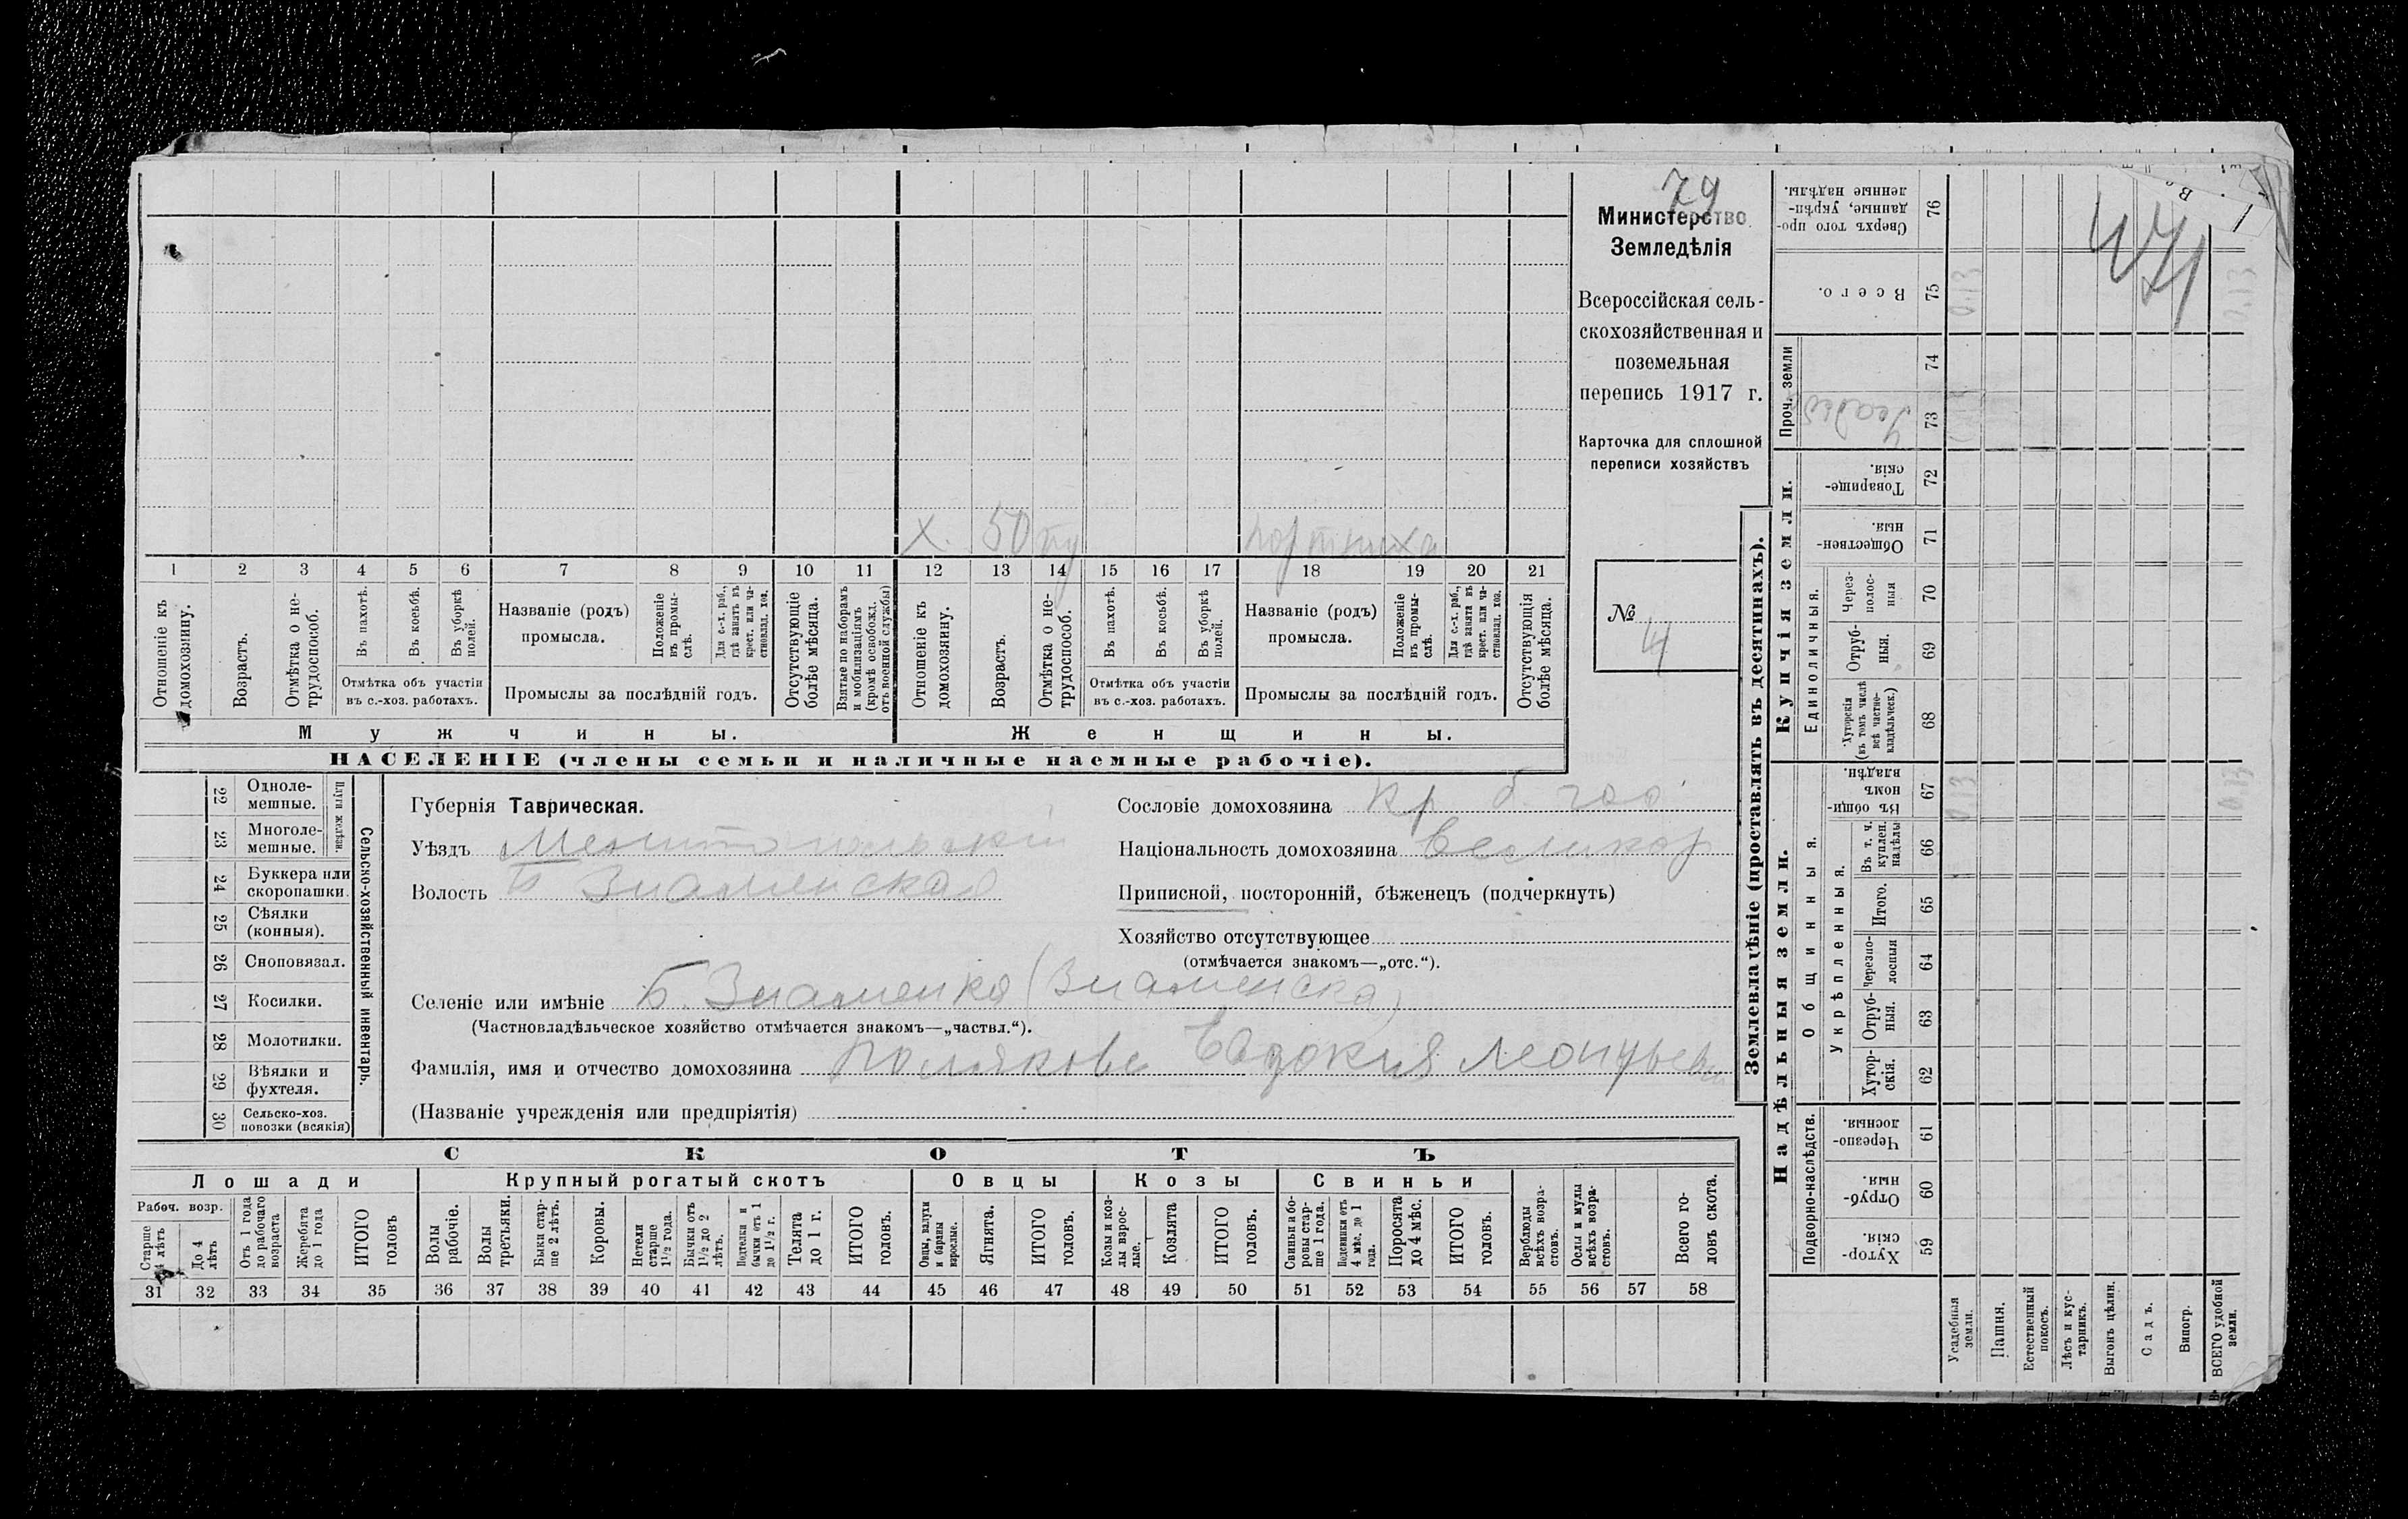 79
Министерство
Земледѣлія
Всероссійская сель-
скохозяйственная и
поземельная
перепись 1917 г.
Карточка для сплошной
переписи хозяйствъ
№ 4
471
х. 50 портниха
1 2 3 4 5 6 7 8 9 10 11 12 13 14 15 16 17 18 19 20 21
Отношеніе къ домохозяину.
Возрастъ.
Отмѣтка о не-трудоспособ.
Въ пахотѣ.
Въ косьбѣ.
Въ уборкѣ полей.
Отмѣтка объ участіи
въ с.-хоз. работахъ.
Названіе (родъ)
промысла.
Положеніе въ промы-слѣ.
Для с.-х. раб., гдѣ занятъ въ крест. или ча-стновлад. хоз.
Промыслы за послѣдній годъ.
Отсутствующіе болѣе мѣсяца.
Взятые по наборамъ и мобилизаціямъ (кромѣ освобожд. отъ военной службы)
Отношеніе къ домохозяину.
Возрастъ.
Отмѣтка о не-трудоспособ.
Въ пахотѣ.
Въ косьбѣ.
Въ уборкѣ полей.
Отмѣтка объ участіи
въ с.-хоз. работахъ.
Названіе (родъ)
промысла.
Положеніе въ промы-слѣ.
Для с.-х. раб., гдѣ занята въ крест. или ча-стновлад. хоз.
Промыслы за послѣдній годъ.
Отсутствующія болѣе мѣсяца.
Мужчины. Женщины.
НАСЕЛЕНІЕ (члены семьи и наличные наемные рабочіе).
Сельско-хозяйственный инвентарь.
Плуги желѣзн
22 Однолемешные.
23 Многолемешные.
24 Буккера или скоропашки.
25 Сѣялки (конныя).
26 Сноповязал.
27 Косилки.
28 Молотилки.
29 Вѣялки и фухтеля.
30 Сельско-хоз. повозки (всякія)
Губернія Таврическая.
Уѣздъ Мелитопольскій
Волость Б Знаменская
Селеніе или имѣніе Б. Знаменка (Знаменска)
(Частновладѣльческое хозяйство отмѣчается знакомъ—„частвл.“).
Фамилія, имя и отчество домохозяина Полякова Евдокия Леонтьевн
(Названіе учрежденія или предпріятія)
Сословіе домохозяина Кр б. гос
Національность домохозяина Великор
Приписной, посторонній, бѣженецъ (подчеркнуть)
Хозяйство отсутствующее
(отмѣчается знакомъ—„отс.“).
СКОТЪ
Лошади Крупный рогатый скотъ Овцы Козы Свиньи
Рабоч. возр.
Старше 4 лѣтъ
До 4 лѣтъ
Отъ 1 года до рабочаго возраста
Жеребята до 1 года
ИТОГО головъ
Волы рабочіе.
Волы третьяки.
Быки стар-ше 2 лѣтъ.
Коровы.
Нетели старше 1½ года.
Бычки отъ 1½ до 2 лѣтъ.
Подтелки и бычки отъ 1 до 1½ г.
Телята до 1 г.
ИТОГО головъ.
Овцы, валухи и бараны взрослые.
Ягнята.
ИТОГО головъ.
Козы и коз-лы взрос-лые.
Козлята
ИТОГО головъ.
Свиньи и бо-ровы стар-ше 1 года.
Подсвинки отъ 4 мѣс. до 1 года.
Поросята до 4 мѣс.
ИТОГО головъ.
Верблюды всѣхъ возра-стовъ.
Ослы и мулы всѣхъ возра-стовъ.
Всего го-ловъ скота.
31 32 33 34 35 36 37 38 39 40 41 42 43 44 45 46 47 48 49 50 51 52 53 54 55 56 57 58
Землевладѣніе (проставлять въ десятинахъ).
Купчія земли.
Надѣльныя земли.
Проч. земли
Усадеб
Единоличныя.
Общинныя.
Укрѣпленныя.
Подворно-наслѣдств.
Сверхъ того про-данные, укрѣп-ленные надѣлы. 76
Всего. 75 0,13
74
73
Товарище-скія. 72
Обществен-ныя. 71
Через-полос-ныя 70
Отруб-ныя. 69
Хуторскія (въ томъ числѣ всѣ частно-владѣльческ.) 68
Въ общи-номъ владѣн. 67 0,13
Въ т. ч. куплен. надѣлы 66
Итого. 65
Черезпо-лосныя 64
Отруб-ныя. 63
Хутор-скія. 62
Черезпо-лосныя. 61
Отруб-ныя. 60
Хутор-скія. 59
Усадебныя земли.
Пашня.
Естественный покосъ.
Лѣсъ и кус-тарникъ.
Выгонъ цѣлин.
Садъ.
Виногр.
ВСЕГО удобной земли.
0,13
0,13